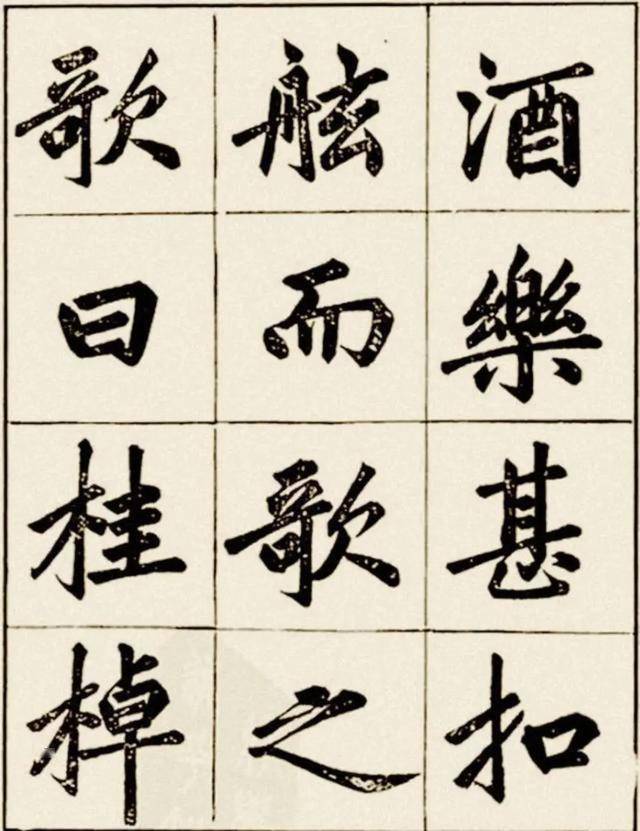 酒樂甚扣
舷而歌之
歌曰桂棹